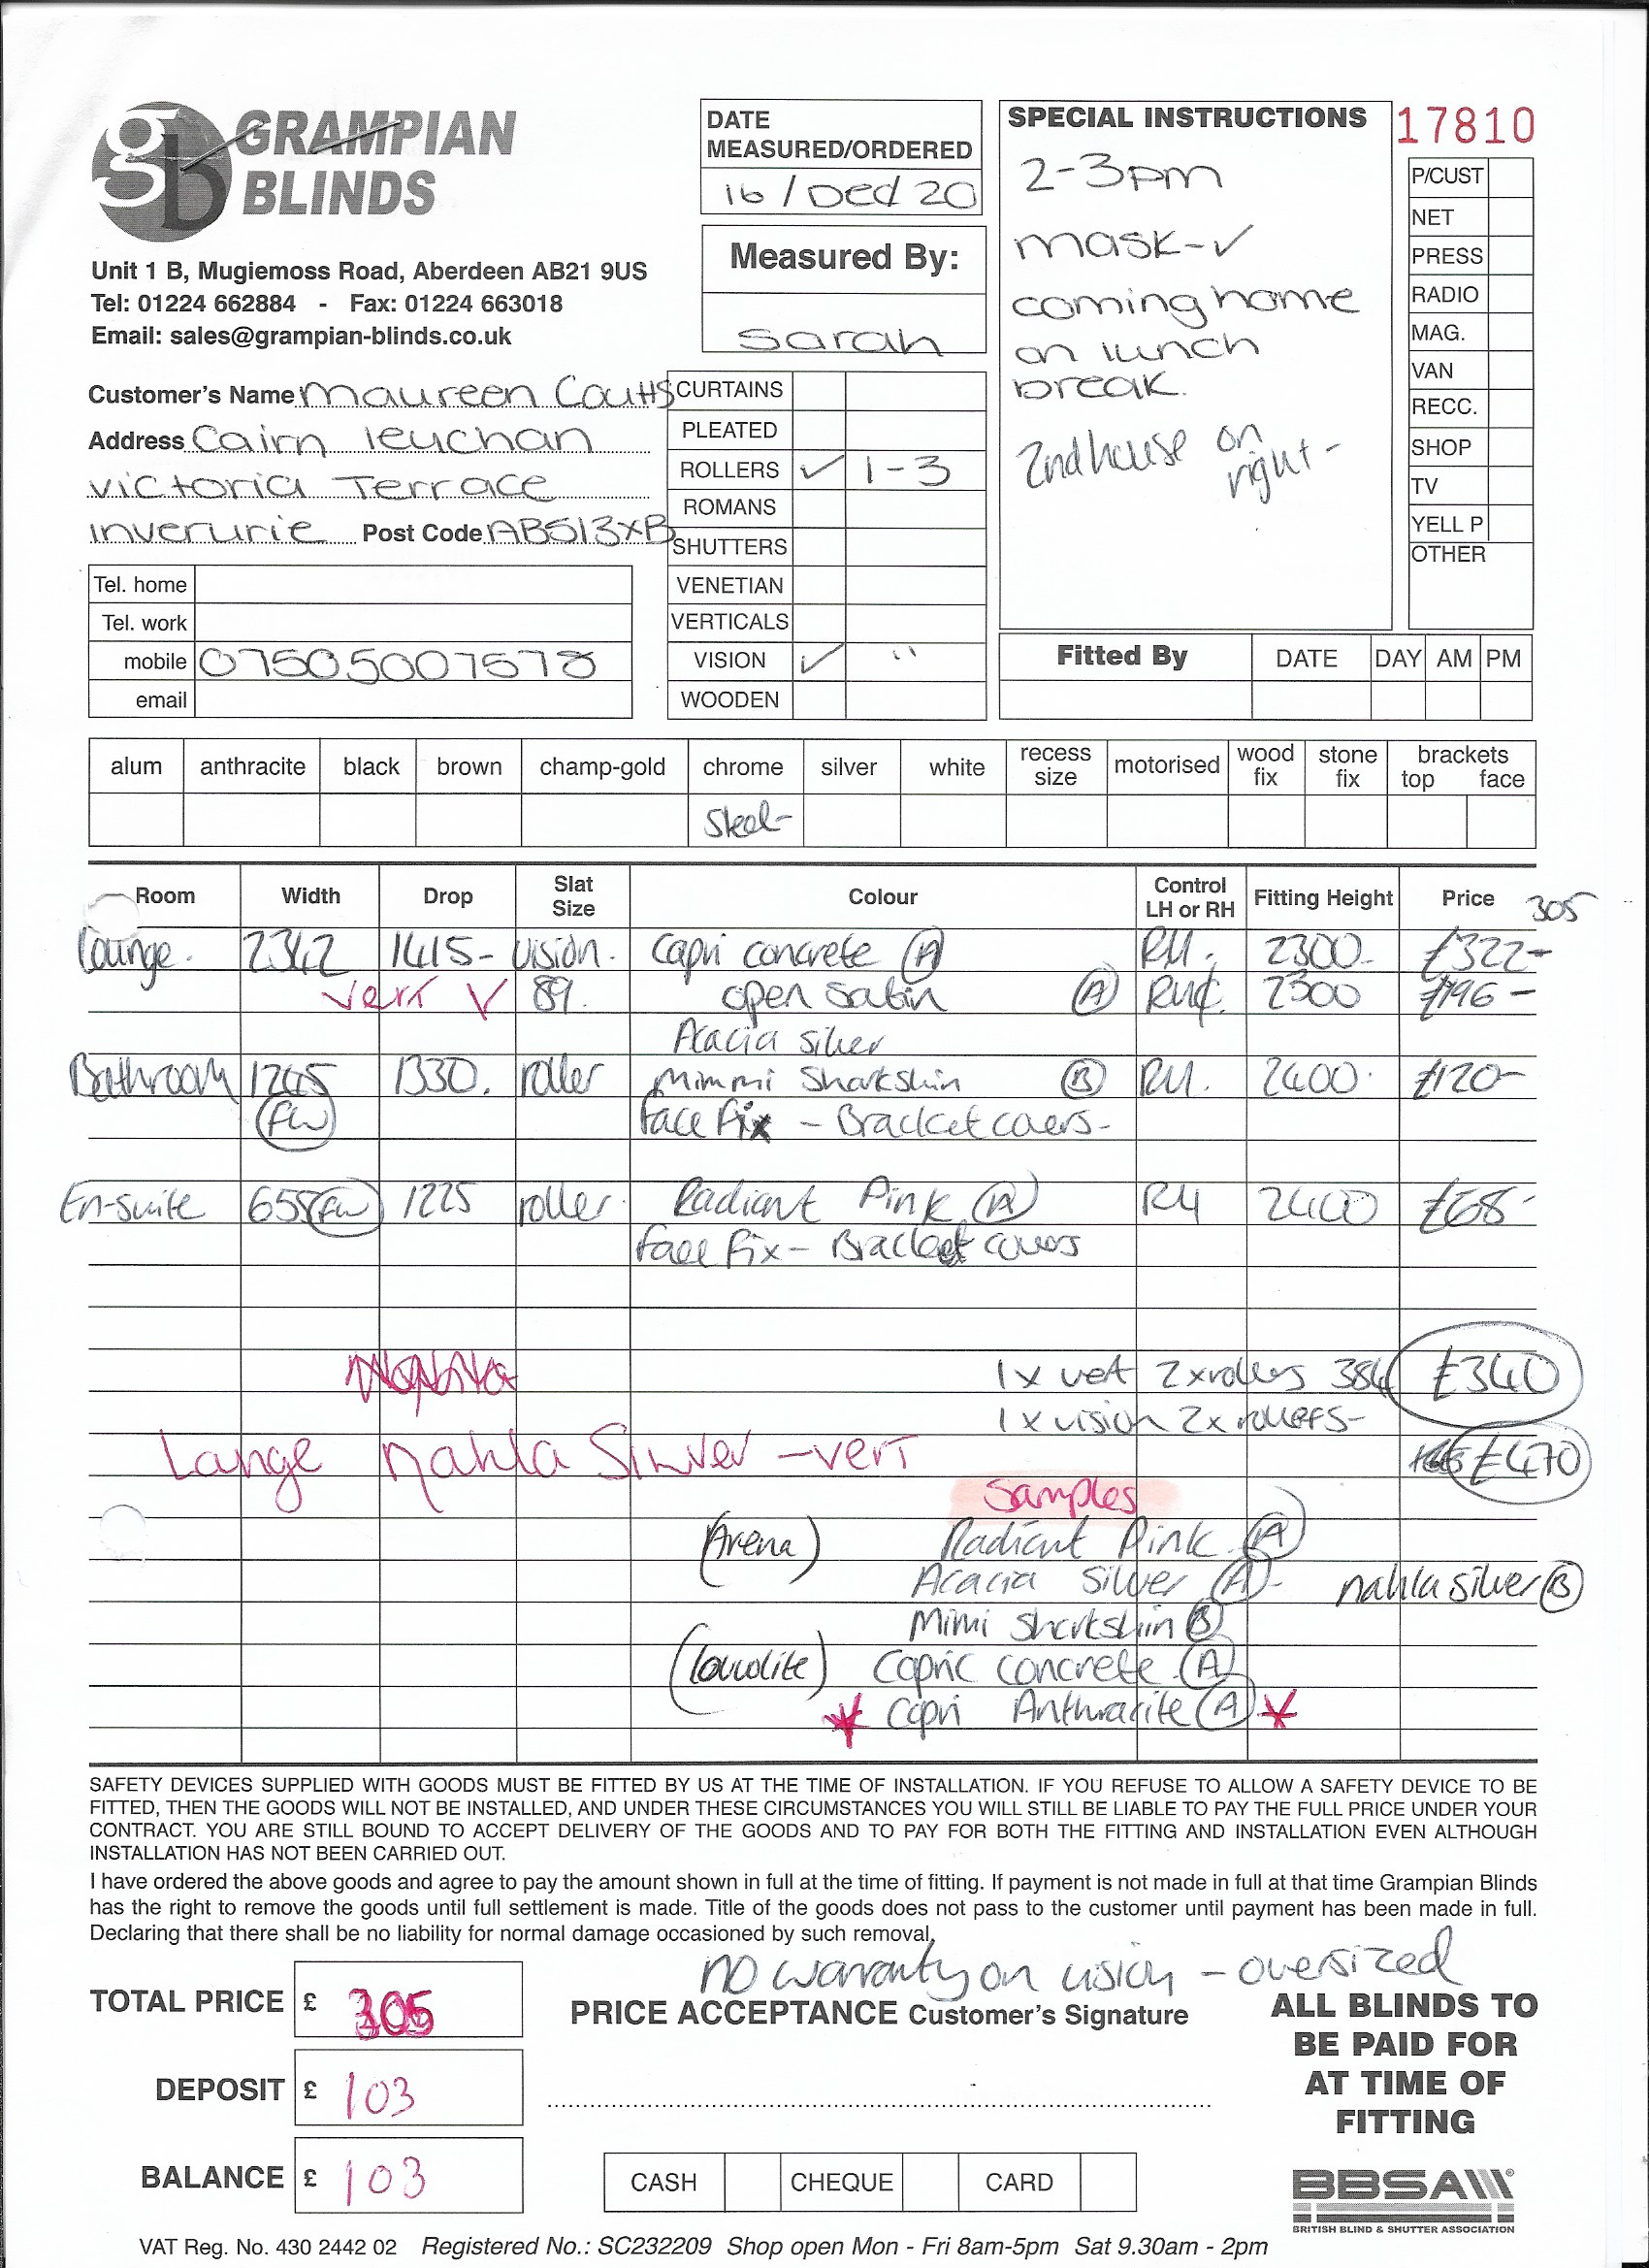 gb GRAMPIAN
BLINDS
Unit 1 B, Mugiemoss Road, Aberdeen AB21 9US
Tel: 01224 662884 - Fax: 01224 663018
Email: sales@grampian-blinds.co.uk
DATE
MEASURED/ORDERED
16 / Dec 20
Measured By:
Sarah
SPECIAL INSTRUCTIONS
2-3pm
mask-✓
coming home
on lunch
break.
2nd house on
right -
17810
P/CUST
NET
PRESS
RADIO
MAG.
VAN
RECC.
SHOP
TV
YELL P
OTHER
Customer's Name Maureen Coutts
Address Cairn leuchan
Victoria Terrace
Inverurie Post Code AB513XB
Tel. home
Tel. work
mobile 07505007578
email
CURTAINS
PLEATED
ROLLERS ✓ 1-3
ROMANS
SHUTTERS
VENETIAN
VERTICALS
VISION ✓ "
WOODEN
Fitted By DATE DAY AM PM
alum anthracite black brown champ-gold chrome silver white recess size motorised wood fix stone fix brackets top face
Steel-
Room Width Drop Slat Size Colour Control LH or RH Fitting Height Price 305
Lounge. 2342 1415- vision. Capri concrete (A) RH. 2300- £322-
vert ✓ 89. open satin (A) 2300 £196-
Acacia silver
Bathroom 1245 1330. roller Mimmi Sharkskin (B) RH. 2400. £120-
(FW) face fix - Bracket covers-
En-suite 655 (FW) 1225 roller. Radiant Pink (A) RH 2400 £68-
face fix - Bracket covers
1 x vert 2 x rollers 384 £340
1 x vision 2 x rollers-
£470
Lange Nahla Silver -vert
Samples
(Arena) Radiant Pink (A)
Acacia Silver (A)- nahla silver (B)
Mimi Sharkskin (B)
(louvolite) Capric concrete (A)
* Capri Anthracite (A) *
SAFETY DEVICES SUPPLIED WITH GOODS MUST BE FITTED BY US AT THE TIME OF INSTALLATION. IF YOU REFUSE TO ALLOW A SAFETY DEVICE TO BE
FITTED, THEN THE GOODS WILL NOT BE INSTALLED, AND UNDER THESE CIRCUMSTANCES YOU WILL STILL BE LIABLE TO PAY THE FULL PRICE UNDER YOUR
CONTRACT. YOU ARE STILL BOUND TO ACCEPT DELIVERY OF THE GOODS AND TO PAY FOR BOTH THE FITTING AND INSTALLATION EVEN ALTHOUGH
INSTALLATION HAS NOT BEEN CARRIED OUT.
I have ordered the above goods and agree to pay the amount shown in full at the time of fitting. If payment is not made in full at that time Grampian Blinds
has the right to remove the goods until full settlement is made. Title of the goods does not pass to the customer until payment has been made in full.
Declaring that there shall be no liability for normal damage occasioned by such removal.
no warranty on vision - oversized
TOTAL PRICE £ 305
DEPOSIT £ 103
BALANCE £ 103
PRICE ACCEPTANCE Customer's Signature
CASH CHEQUE CARD
ALL BLINDS TO
BE PAID FOR
AT TIME OF
FITTING
BBSA
BRITISH BLIND & SHUTTER ASSOCIATION
VAT Reg. No. 430 2442 02 Registered No.: SC232209 Shop open Mon - Fri 8am-5pm Sat 9.30am - 2pm